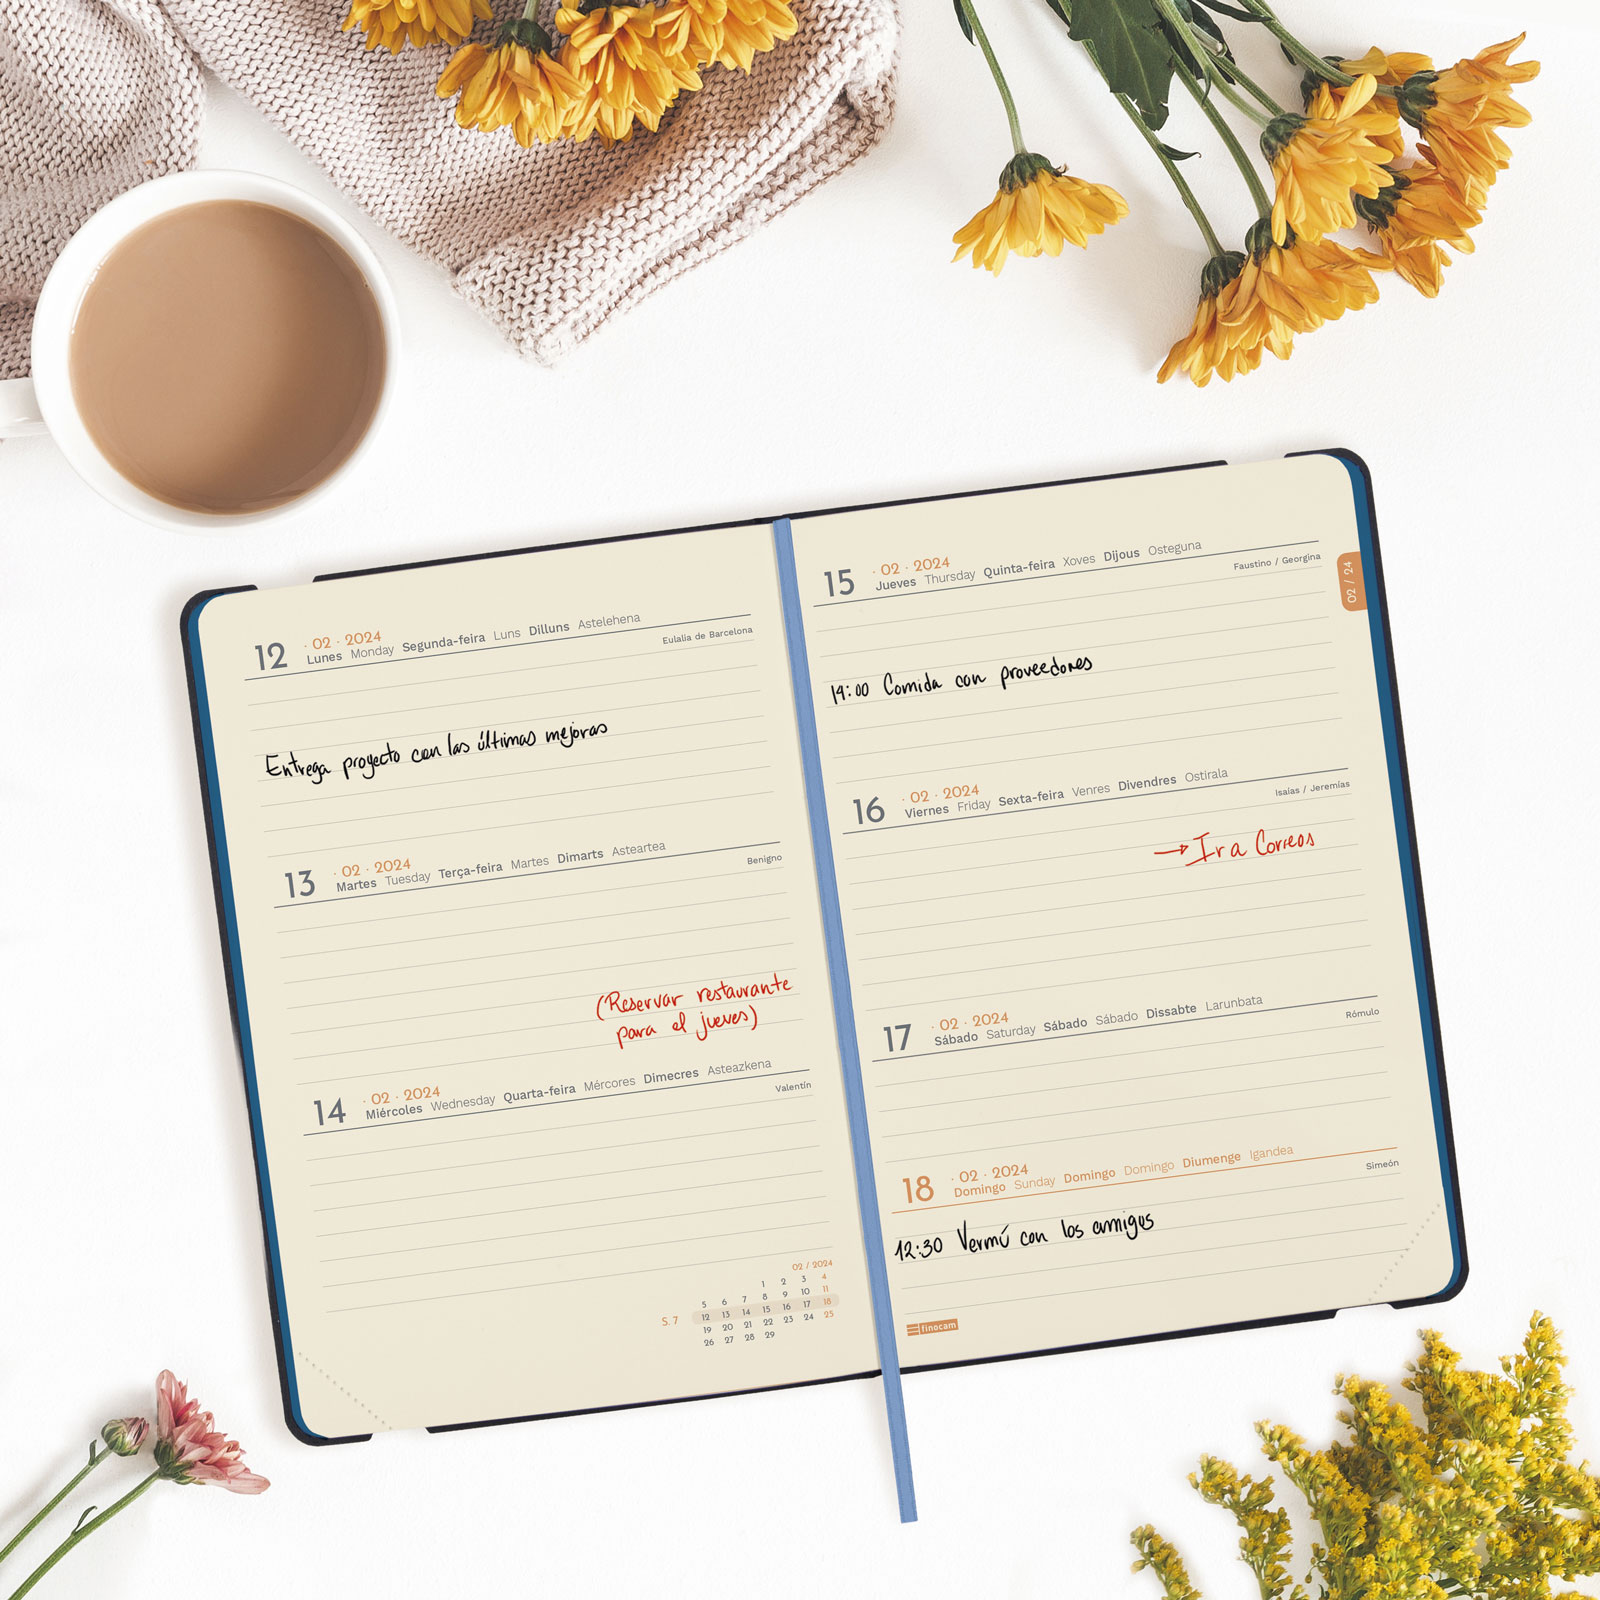 12 · 02 · 2024
Lunes Monday Segunda-feira Luns Dilluns Astelehena
Eulalia de Barcelona
Entrega proyecto con las últimas mejoras
13 · 02 · 2024
Martes Tuesday Terça-feira Martes Dimarts Asteartea
Benigno
(Reservar restaurante
para el jueves)
14 · 02 · 2024
Miércoles Wednesday Quarta-feira Mércores Dimecres Asteazkena
Valentín
02 / 2024
1 2 3 4
5 6 7 8 9 10 11
S. 7 12 13 14 15 16 17 18
19 20 21 22 23 24 25
26 27 28 29
15 · 02 · 2024
Jueves Thursday Quinta-feira Xoves Dijous Osteguna
Faustino / Georgina
02 / 24
14:00 Comida con proveedores
16 · 02 · 2024
Viernes Friday Sexta-feira Venres Divendres Ostirala
Isaías / Jeremías
→ Ir a Correos
17 · 02 · 2024
Sábado Saturday Sábado Sábado Dissabte Larunbata
Rómulo
18 · 02 · 2024
Domingo Sunday Domingo Domingo Diumenge Igandea
Simeón
12:30 Vermú con los amigos
finocam